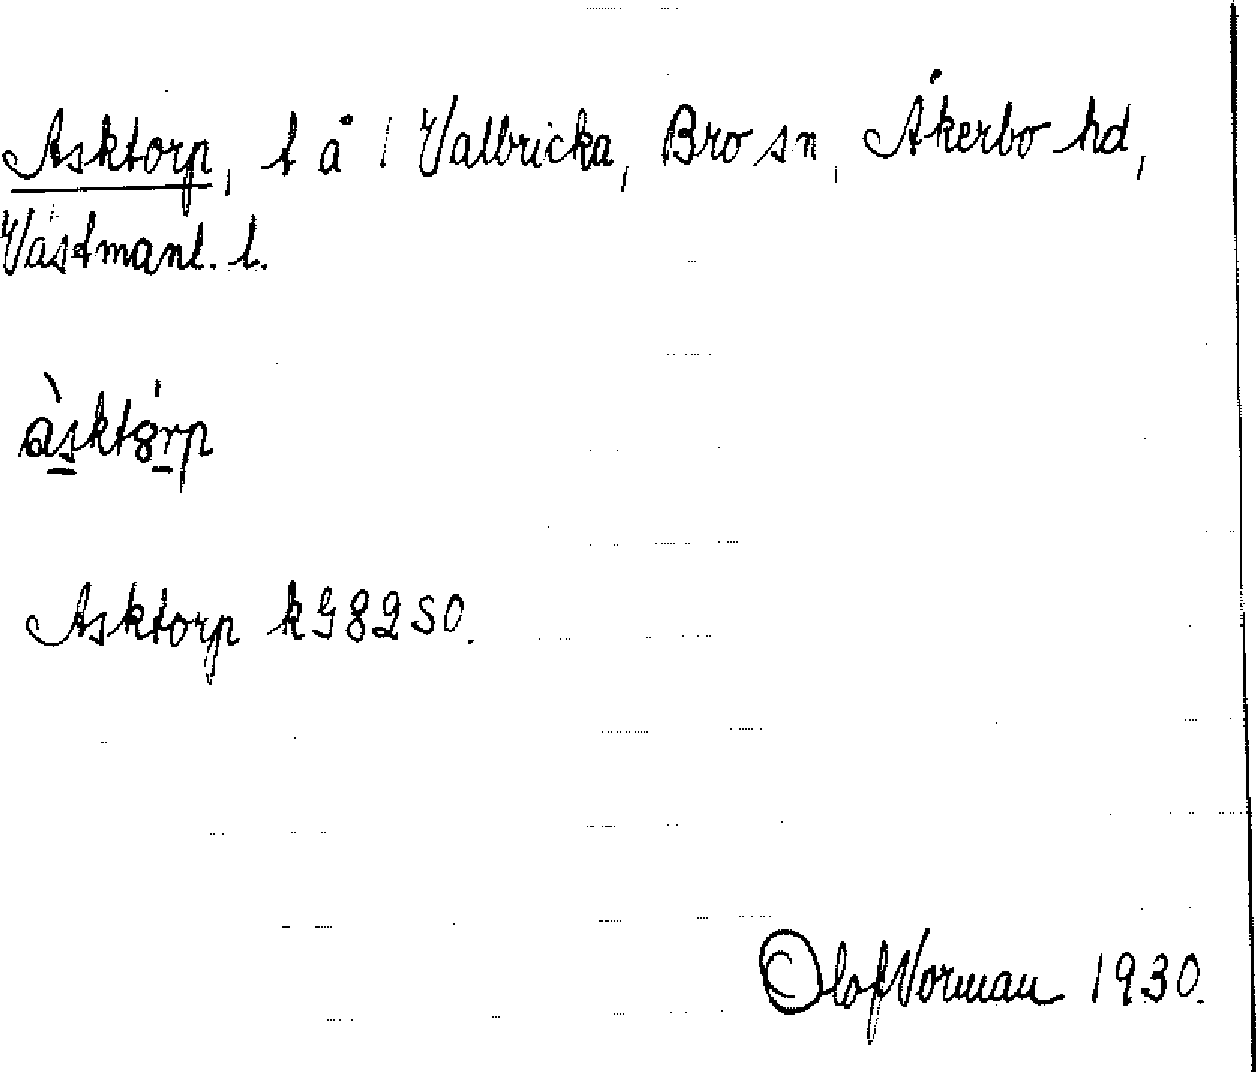 Asktorp, t å i Valbricka, Bro sn, Åkerbo hd,
Västmanl. l.
àsktórp
Asktorp k G 82 SO.
Olof Norman 1930.